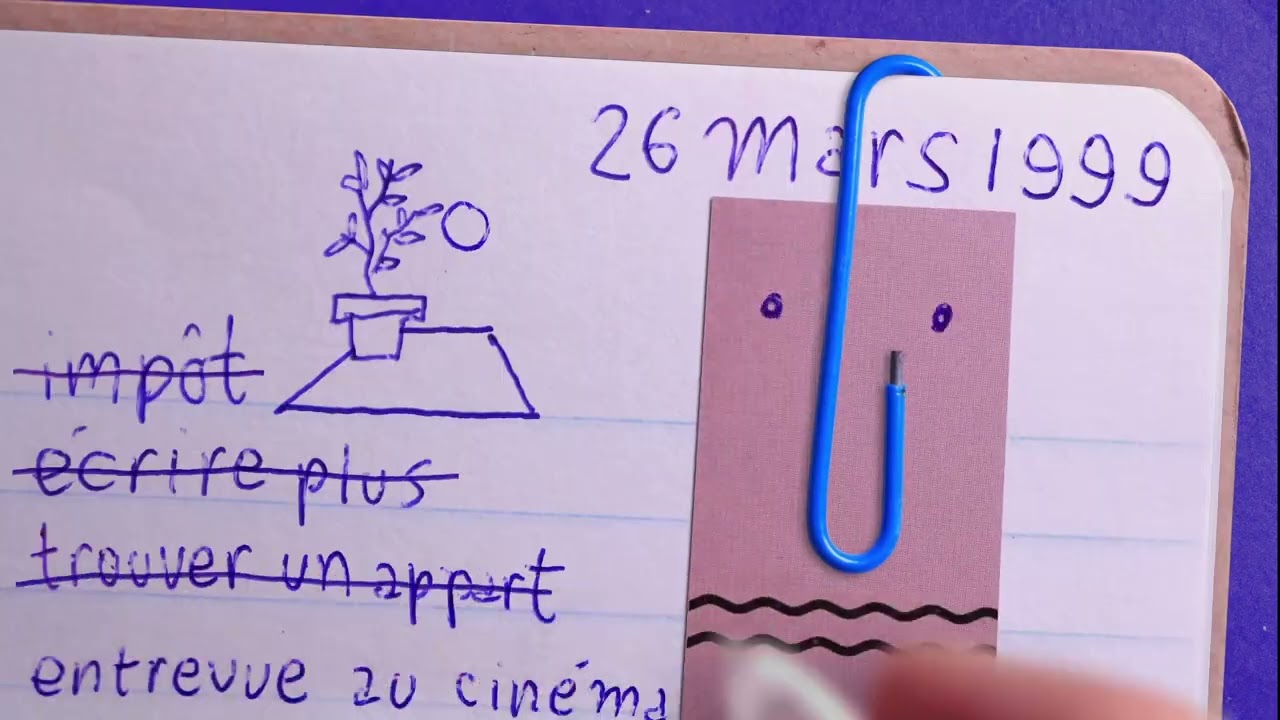 26 Mars 1999
impôt
écrire plus
trouver un appart
entrevue au cinéma